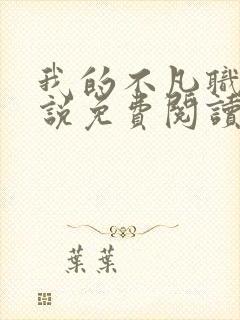 我的不凡職
說免費閱讀
葉葉